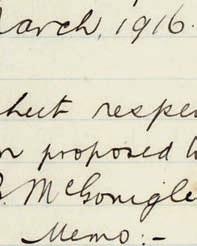 March, 1916.
sheet respe
proposed to
McGonigle
Memo:-